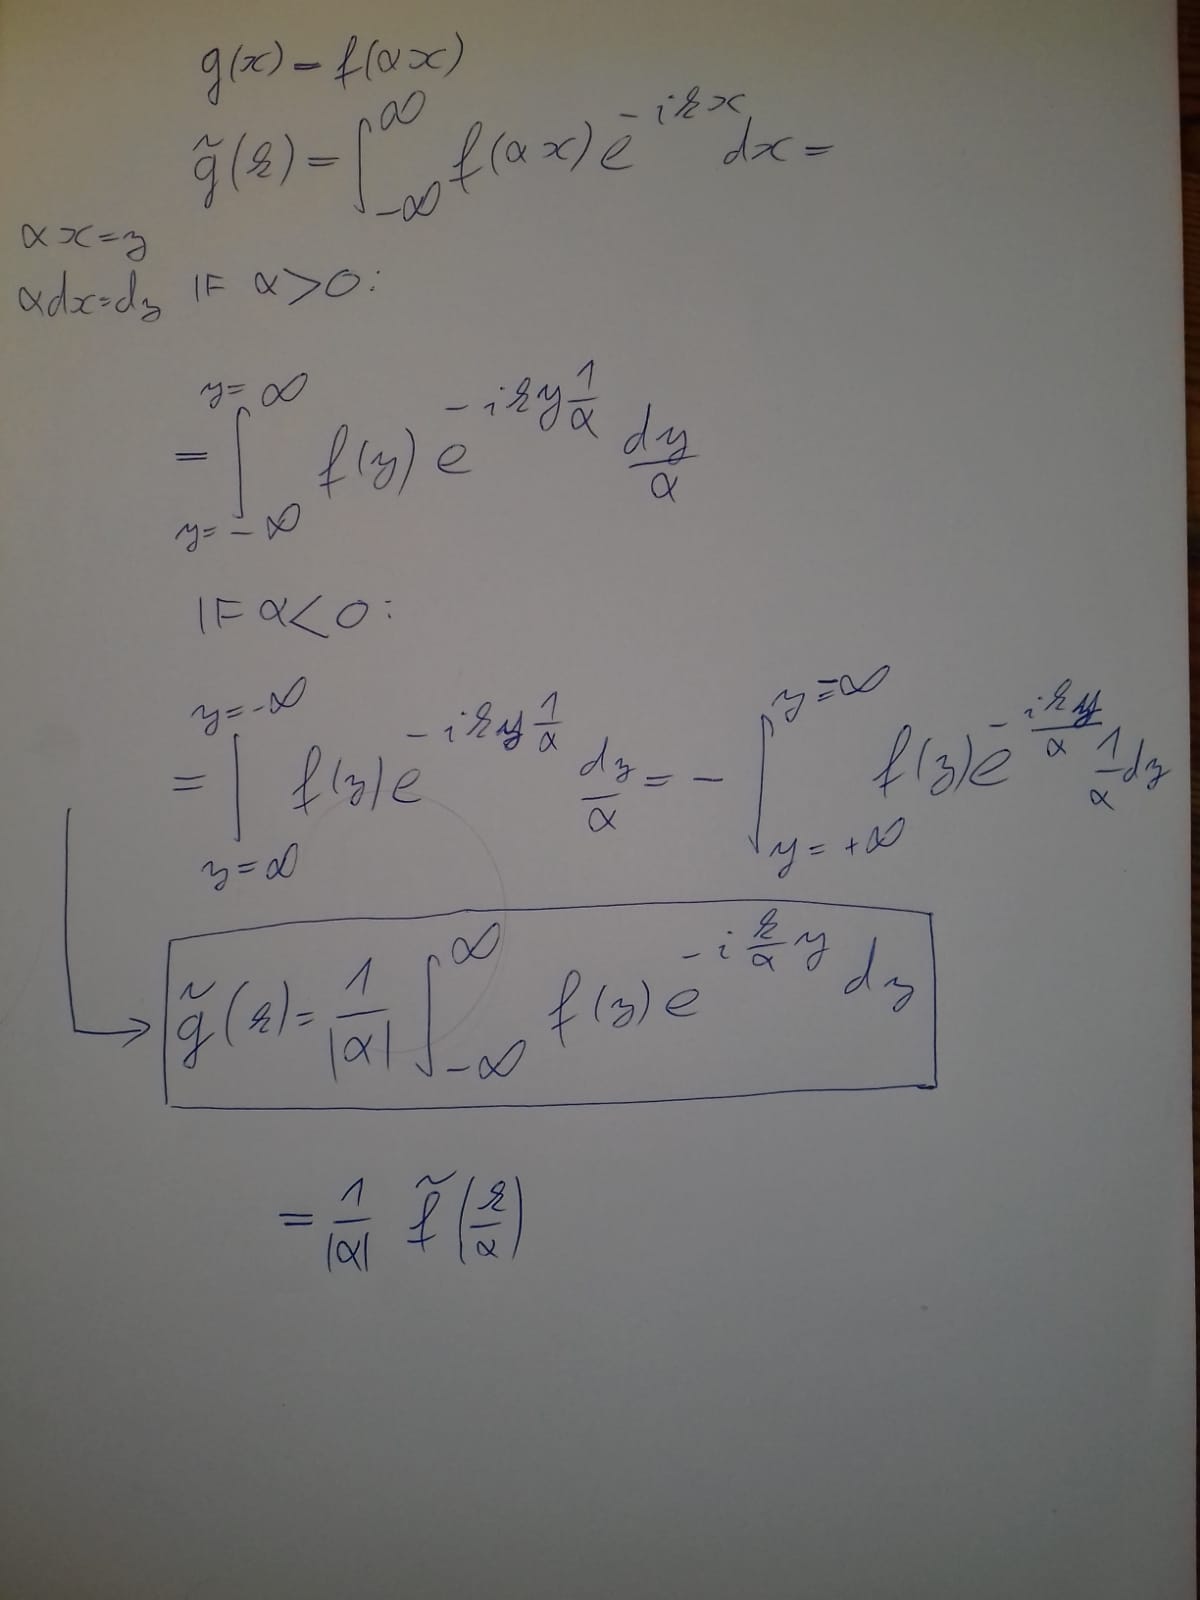 g(x) = f(αx)
g̃(k) = ∫_{-∞}^{∞} f(αx) e^{-ikx} dx =
αx = y
αdx = dy IF α > 0:
= ∫_{y=-∞}^{y=∞} f(y) e^{-iky\frac{1}{α}} \frac{dy}{α}
IF α < 0:
= ∫_{y=∞}^{y=-∞} f(y) e^{-iky\frac{1}{α}} \frac{dy}{α} = - ∫_{y=+∞}^{y=∞} f(y) e^{-\frac{iky}{α}} \frac{1}{α} dy
g̃(k) = \frac{1}{|α|} ∫_{-∞}^{∞} f(y) e^{-i\frac{k}{α}y} dy
= \frac{1}{|α|} f̃(\frac{k}{α})